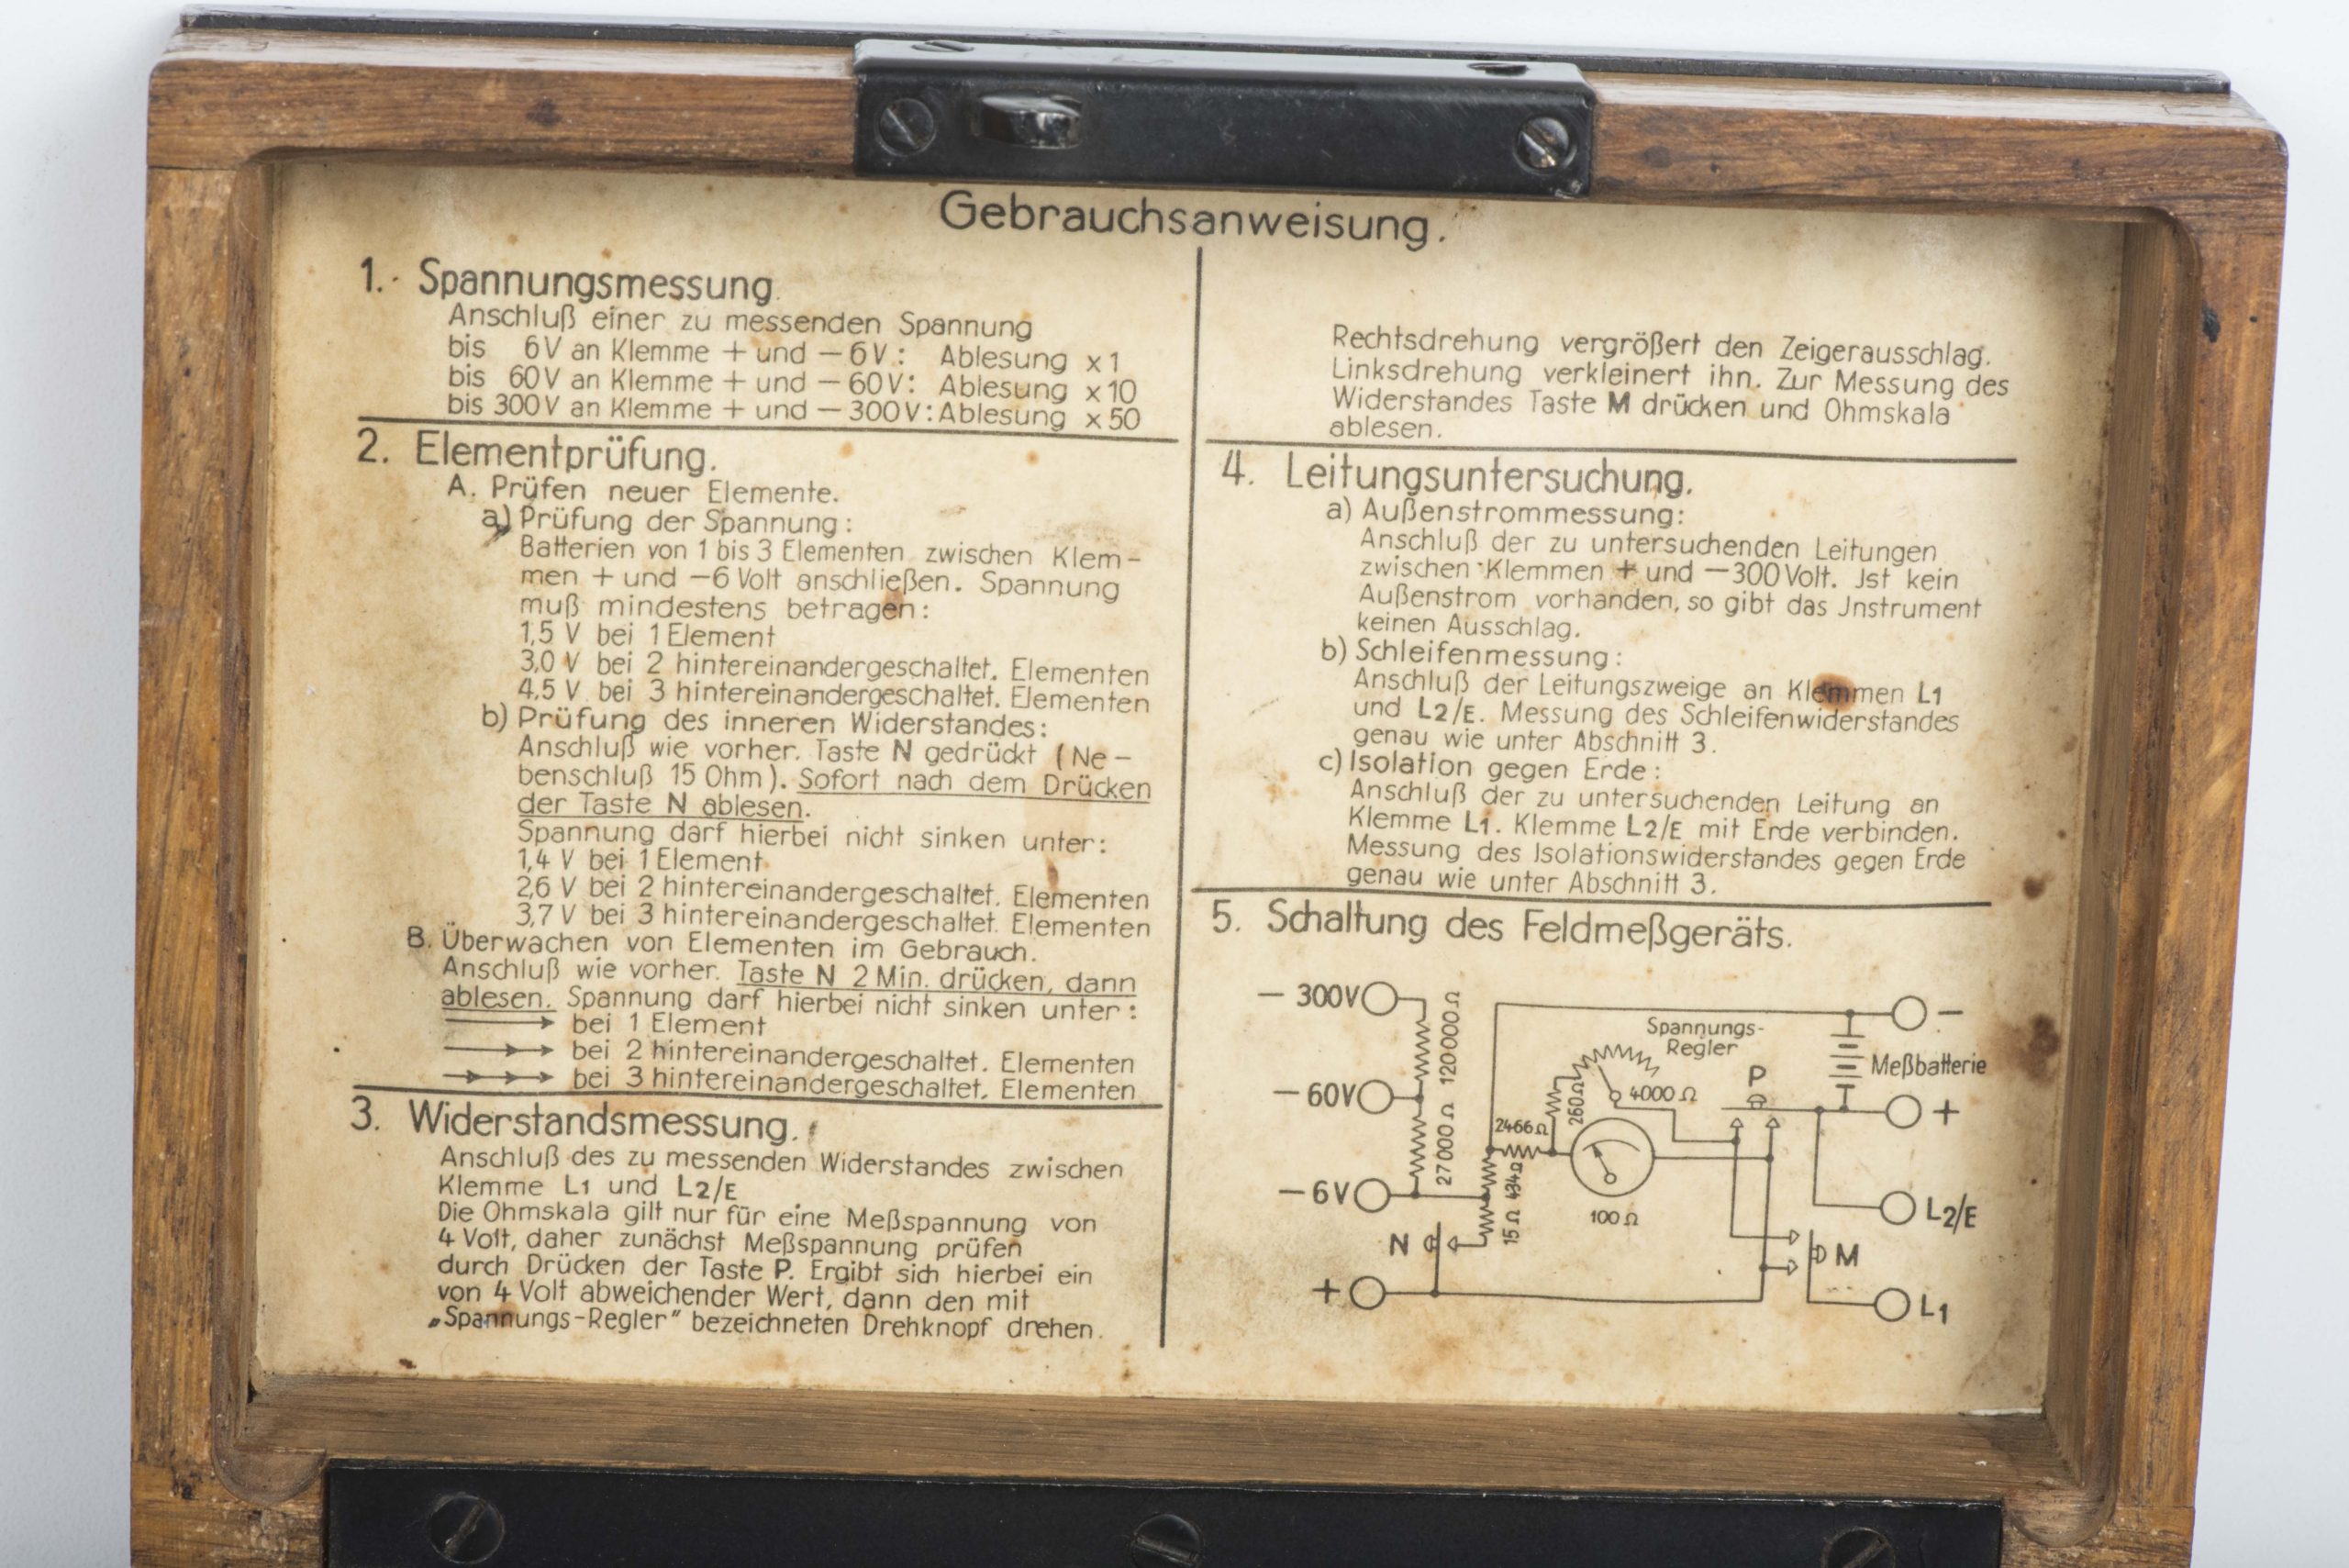 Gebrauchsanweisung.
1. Spannungsmessung.
Anschluß einer zu messenden Spannung
bis 6V an Klemme + und – 6V: Ablesung x 1
bis 60V an Klemme + und – 60V: Ablesung x 10
bis 300V an Klemme + und – 300V: Ablesung x 50
2. Elementprüfung.
A. Prüfen neuer Elemente.
a) Prüfung der Spannung:
Batterien von 1 bis 3 Elementen zwischen Klem-
men + und –6 Volt anschließen. Spannung
muß mindestens betragen:
1,5 V bei 1 Element
3,0 V bei 2 hintereinandergeschaltet. Elementen
4,5 V bei 3 hintereinandergeschaltet. Elementen
b) Prüfung des inneren Widerstandes:
Anschluß wie vorher. Taste N gedrückt (Ne-
benschluß 15 Ohm). Sofort nach dem Drücken
der Taste N ablesen.
Spannung darf hierbei nicht sinken unter:
1,4 V bei 1 Element
2,6 V bei 2 hintereinandergeschaltet. Elementen
3,7 V bei 3 hintereinandergeschaltet. Elementen
B. Überwachen von Elementen im Gebrauch.
Anschluß wie vorher. Taste N 2 Min. drücken, dann
ablesen. Spannung darf hierbei nicht sinken unter:
bei 1 Element
bei 2 hintereinandergeschaltet. Elementen
bei 3 hintereinandergeschaltet. Elementen
3. Widerstandsmessung.
Anschluß des zu messenden Widerstandes zwischen
Klemme L1 und L2/E
Die Ohmskala gilt nur für eine Meßspannung von
4 Volt, daher zunächst Meßspannung prüfen
durch Drücken der Taste P. Ergibt sich hierbei ein
von 4 Volt abweichender Wert, dann den mit
„Spannungs-Regler" bezeichneten Drehknopf drehen.
Rechtsdrehung vergrößert den Zeigerausschlag.
Linksdrehung verkleinert ihn. Zur Messung des
Widerstandes Taste M drücken und Ohmskala
ablesen.
4. Leitungsuntersuchung.
a) Außenstrommessung:
Anschluß der zu untersuchenden Leitungen
zwischen Klemmen + und –300 Volt. Jst kein
Außenstrom vorhanden, so gibt das Jnstrument
keinen Ausschlag.
b) Schleifenmessung:
Anschluß der Leitungszweige an Klemmen L1
und L2/E. Messung des Schleifenwiderstandes
genau wie unter Abschnitt 3.
c) Isolation gegen Erde:
Anschluß der zu untersuchenden Leitung an
Klemme L1. Klemme L2/E mit Erde verbinden.
Messung des Isolationswiderstandes gegen Erde
genau wie unter Abschnitt 3.
5. Schaltung des Feldmeßgeräts.
– 300V
– 60V
– 6V
N
+
120000 Ω
27000 Ω
2466 Ω
434 Ω
15 Ω
260 Ω
Spannungs-
Regler
4000 Ω
100 Ω
P
–
Meßbatterie
+
L2/E
M
L1